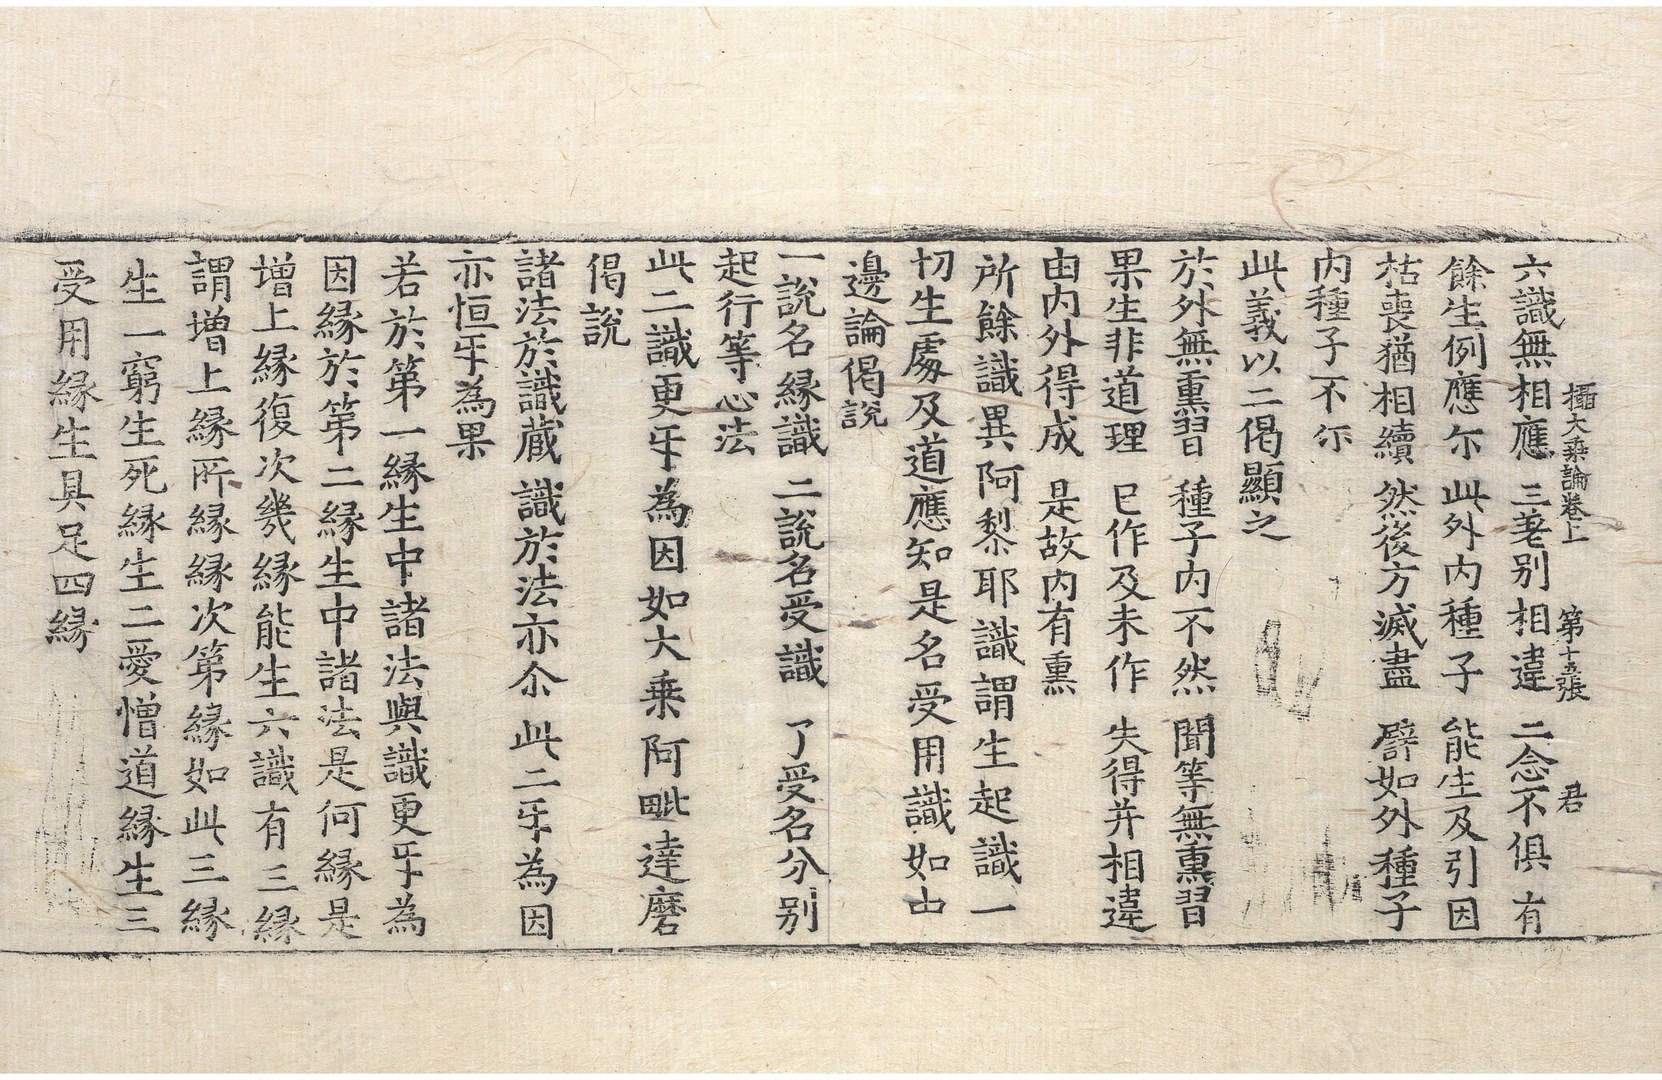 攝大乘論卷上　第十五張　君
六識無相應　三差別相違　二念不俱　有
餘生例應尒　此外內種子　能生及引因
枯喪猶相續　然後方滅盡　譬如外種子
內種子不尒
此義以二偈顯之
於外無熏習　種子內不然　聞等無熏習
果生非道理　已作及未作　失得并相違
由內外得成　是故內有熏
所餘識異阿黎耶識謂生起識一
切生處及道應知是名受用識如中
邊論偈說
一說名緣識　二說名受識　了受名分別
起行等心法
此二識更互為因如大乘阿毗達磨
偈說
諸法於識藏　識於法亦尒　此二互為因
亦恒互為果
若於第一緣生中諸法與識更互為
因緣於第二緣生中諸法是何緣是
增上緣復次幾緣能生六識有三緣
謂增上緣所緣緣次第緣如此三緣
生一窮生死緣生二愛憎道緣生三
受用緣生具足四緣